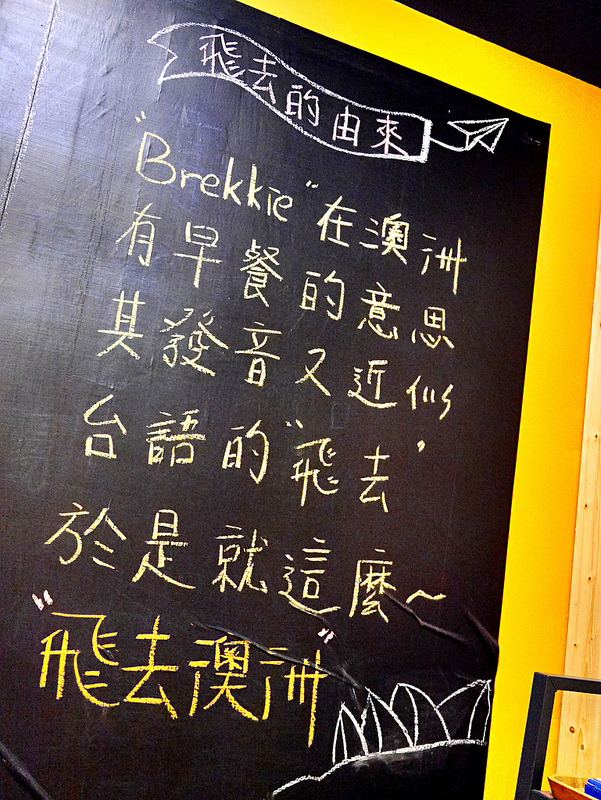 飛去的由來
"Brekkie"在澳洲
有早餐的意思
其發音又近似
台語的"飛去"
於是就這麼~
"飛去澳洲"